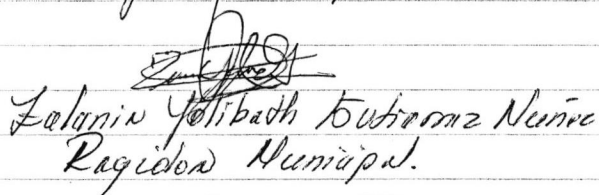 Yolibath Gutierrez Nuñez
Regidor Municipal.